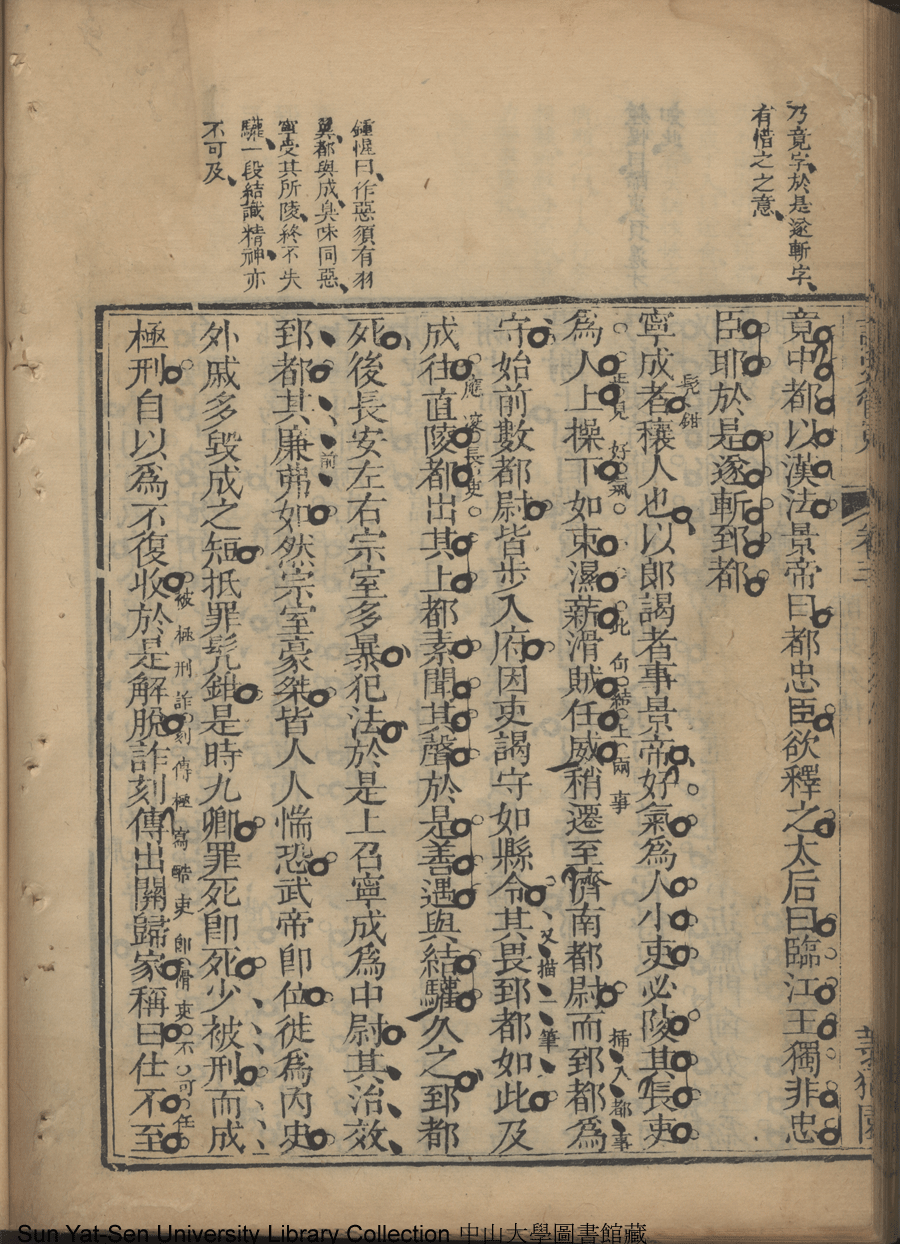 乃竟字於是遂斬字
有惜之之意
鍾惺曰作惡須有羽
翼都與成臭味同惡
寧受其所陵終不失
驩一段結識精神亦
不可及
竟中都以漢法景帝曰都忠臣欲釋之太后曰臨江王獨非忠
臣耶於是遂斬郅都
寧成者穰人也以郎謁者事景帝好氣為人小吏必陵其長吏
髡鉗
為人上操下如束濕薪滑賊任威稍遷至濟南都尉而郅都為
正見好氣
此句結上兩事
插入都事
守始前數都尉皆步入府因吏謁守如縣令其畏郅都如此及
又描一筆
成往直陵都出其上都素聞其聲於是善遇與結驩久之郅都
應凌長吏
死後長安左右宗室多暴犯法於是上召寧成為中尉其治效
郅都其廉弗如然宗室豪桀皆人人惴恐武帝即位徙為內史
前
外戚多毀成之短抵罪髡鉗是時九卿罪死即死少被刑而成
極刑自以為不復收於是解脫詐刻傳出關歸家稱曰仕不至
被極刑詐刻傳極寫酷吏即滑吏不可任
Sun Yat-Sen University Library Collection 中山大學圖書館藏